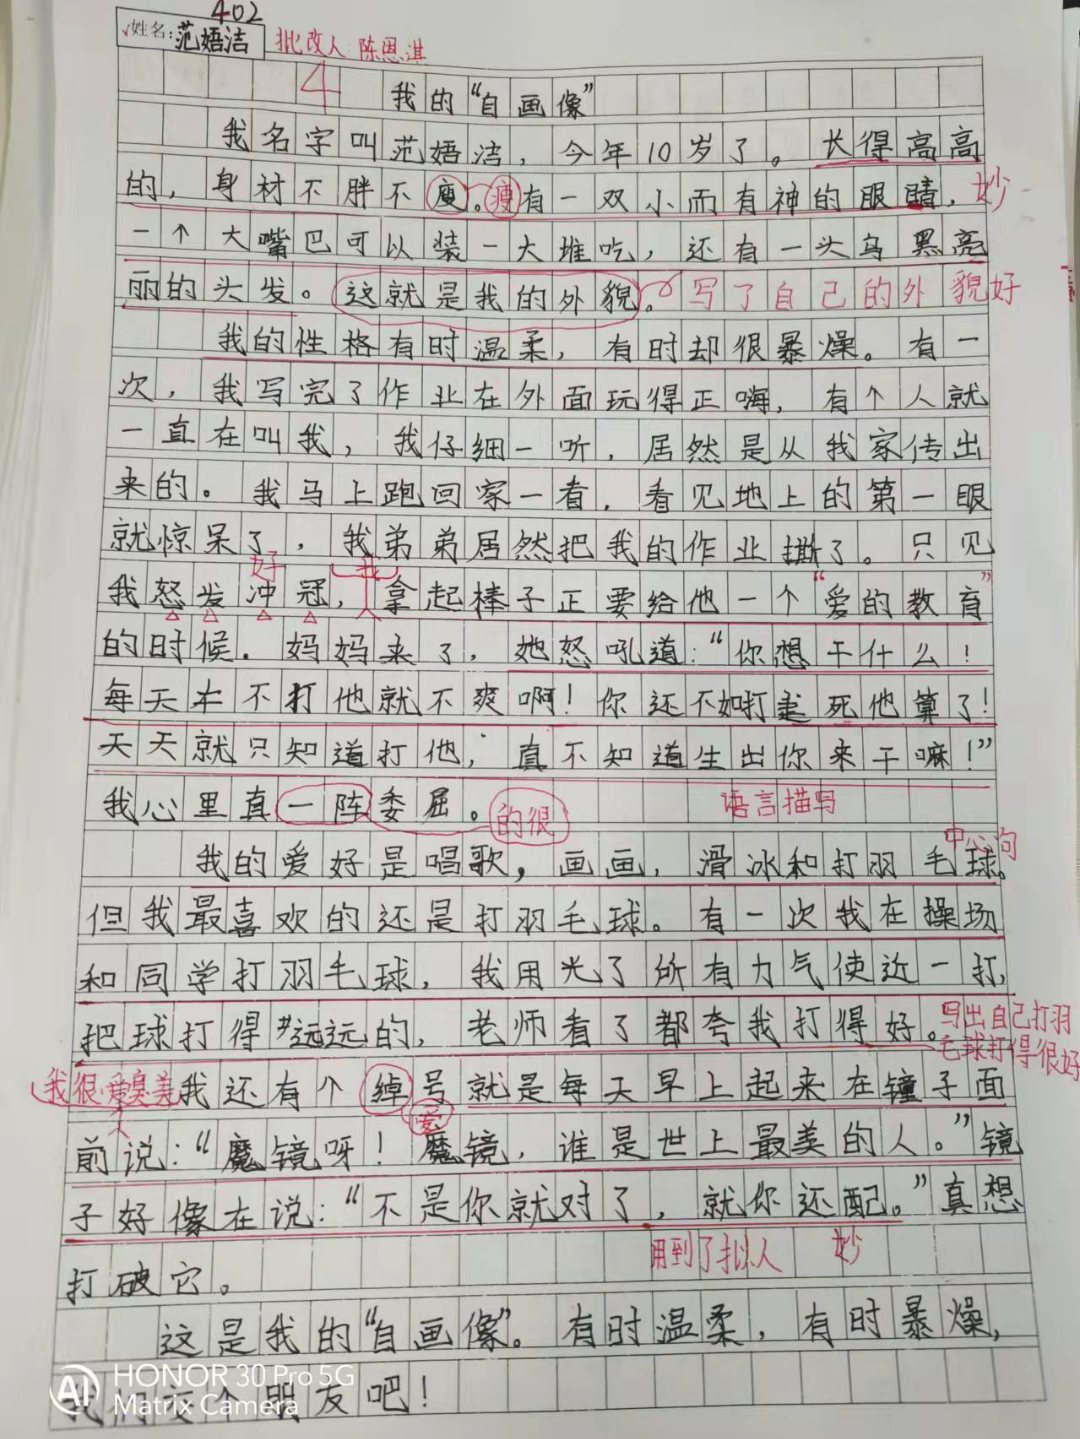 402
姓名:范娪洁 批改人:陈恩淇
4 我的“自画像”
我名字叫范娪洁,今年10岁了。长得高高
的,身材不胖不瘦。瘦有一双小而有神的眼睛,妙
一个大嘴巴可以装一大堆吃,还有一头乌黑亮
丽的头发。这就是我的外貌。写了自己的外貌好
我的性格有时温柔,有时却很暴燥。有一
次,我写完了作业在外面玩得正嗨,有个人就
一直在叫我,我仔细一听,居然是从我家传出
来的。我马上跑回家一看,看见地上的第一眼
就惊呆了,我弟弟居然把我的作业撕了。只见
好 我
我怒发冲冠,拿起棒子正要给他一个“爱的教育”
的时候.妈妈来了,她怒吼道:“你想干什么!
每天不打他就不爽啊!你还不如打死他算了!
天天就只知道打他,真不知道生出你来干嘛!”
我心里真一阵委屈。的很 语言描写
中心句
我的爱好是唱歌,画画,滑冰和打羽毛球。
但我最喜欢的还是打羽毛球。有一次我在操场
和同学打羽毛球,我用光了所有力气使近一打,
把球打得远远的,老师看了都夸我打得好。写出自己打羽
毛球打得很好
我很爱臭美我还有个绰号就是每天早上起来在镜子面
爱
前说:“魔镜呀!魔镜,谁是世上最美的人。”镜
子好像在说:“不是你就对了,就你还配。”真想
用到了拟人 妙
打破它。
这是我的“自画像”。有时温柔,有时暴燥,
我们交个朋友吧!
HONOR 30 Pro 5G
AI Matrix Camera